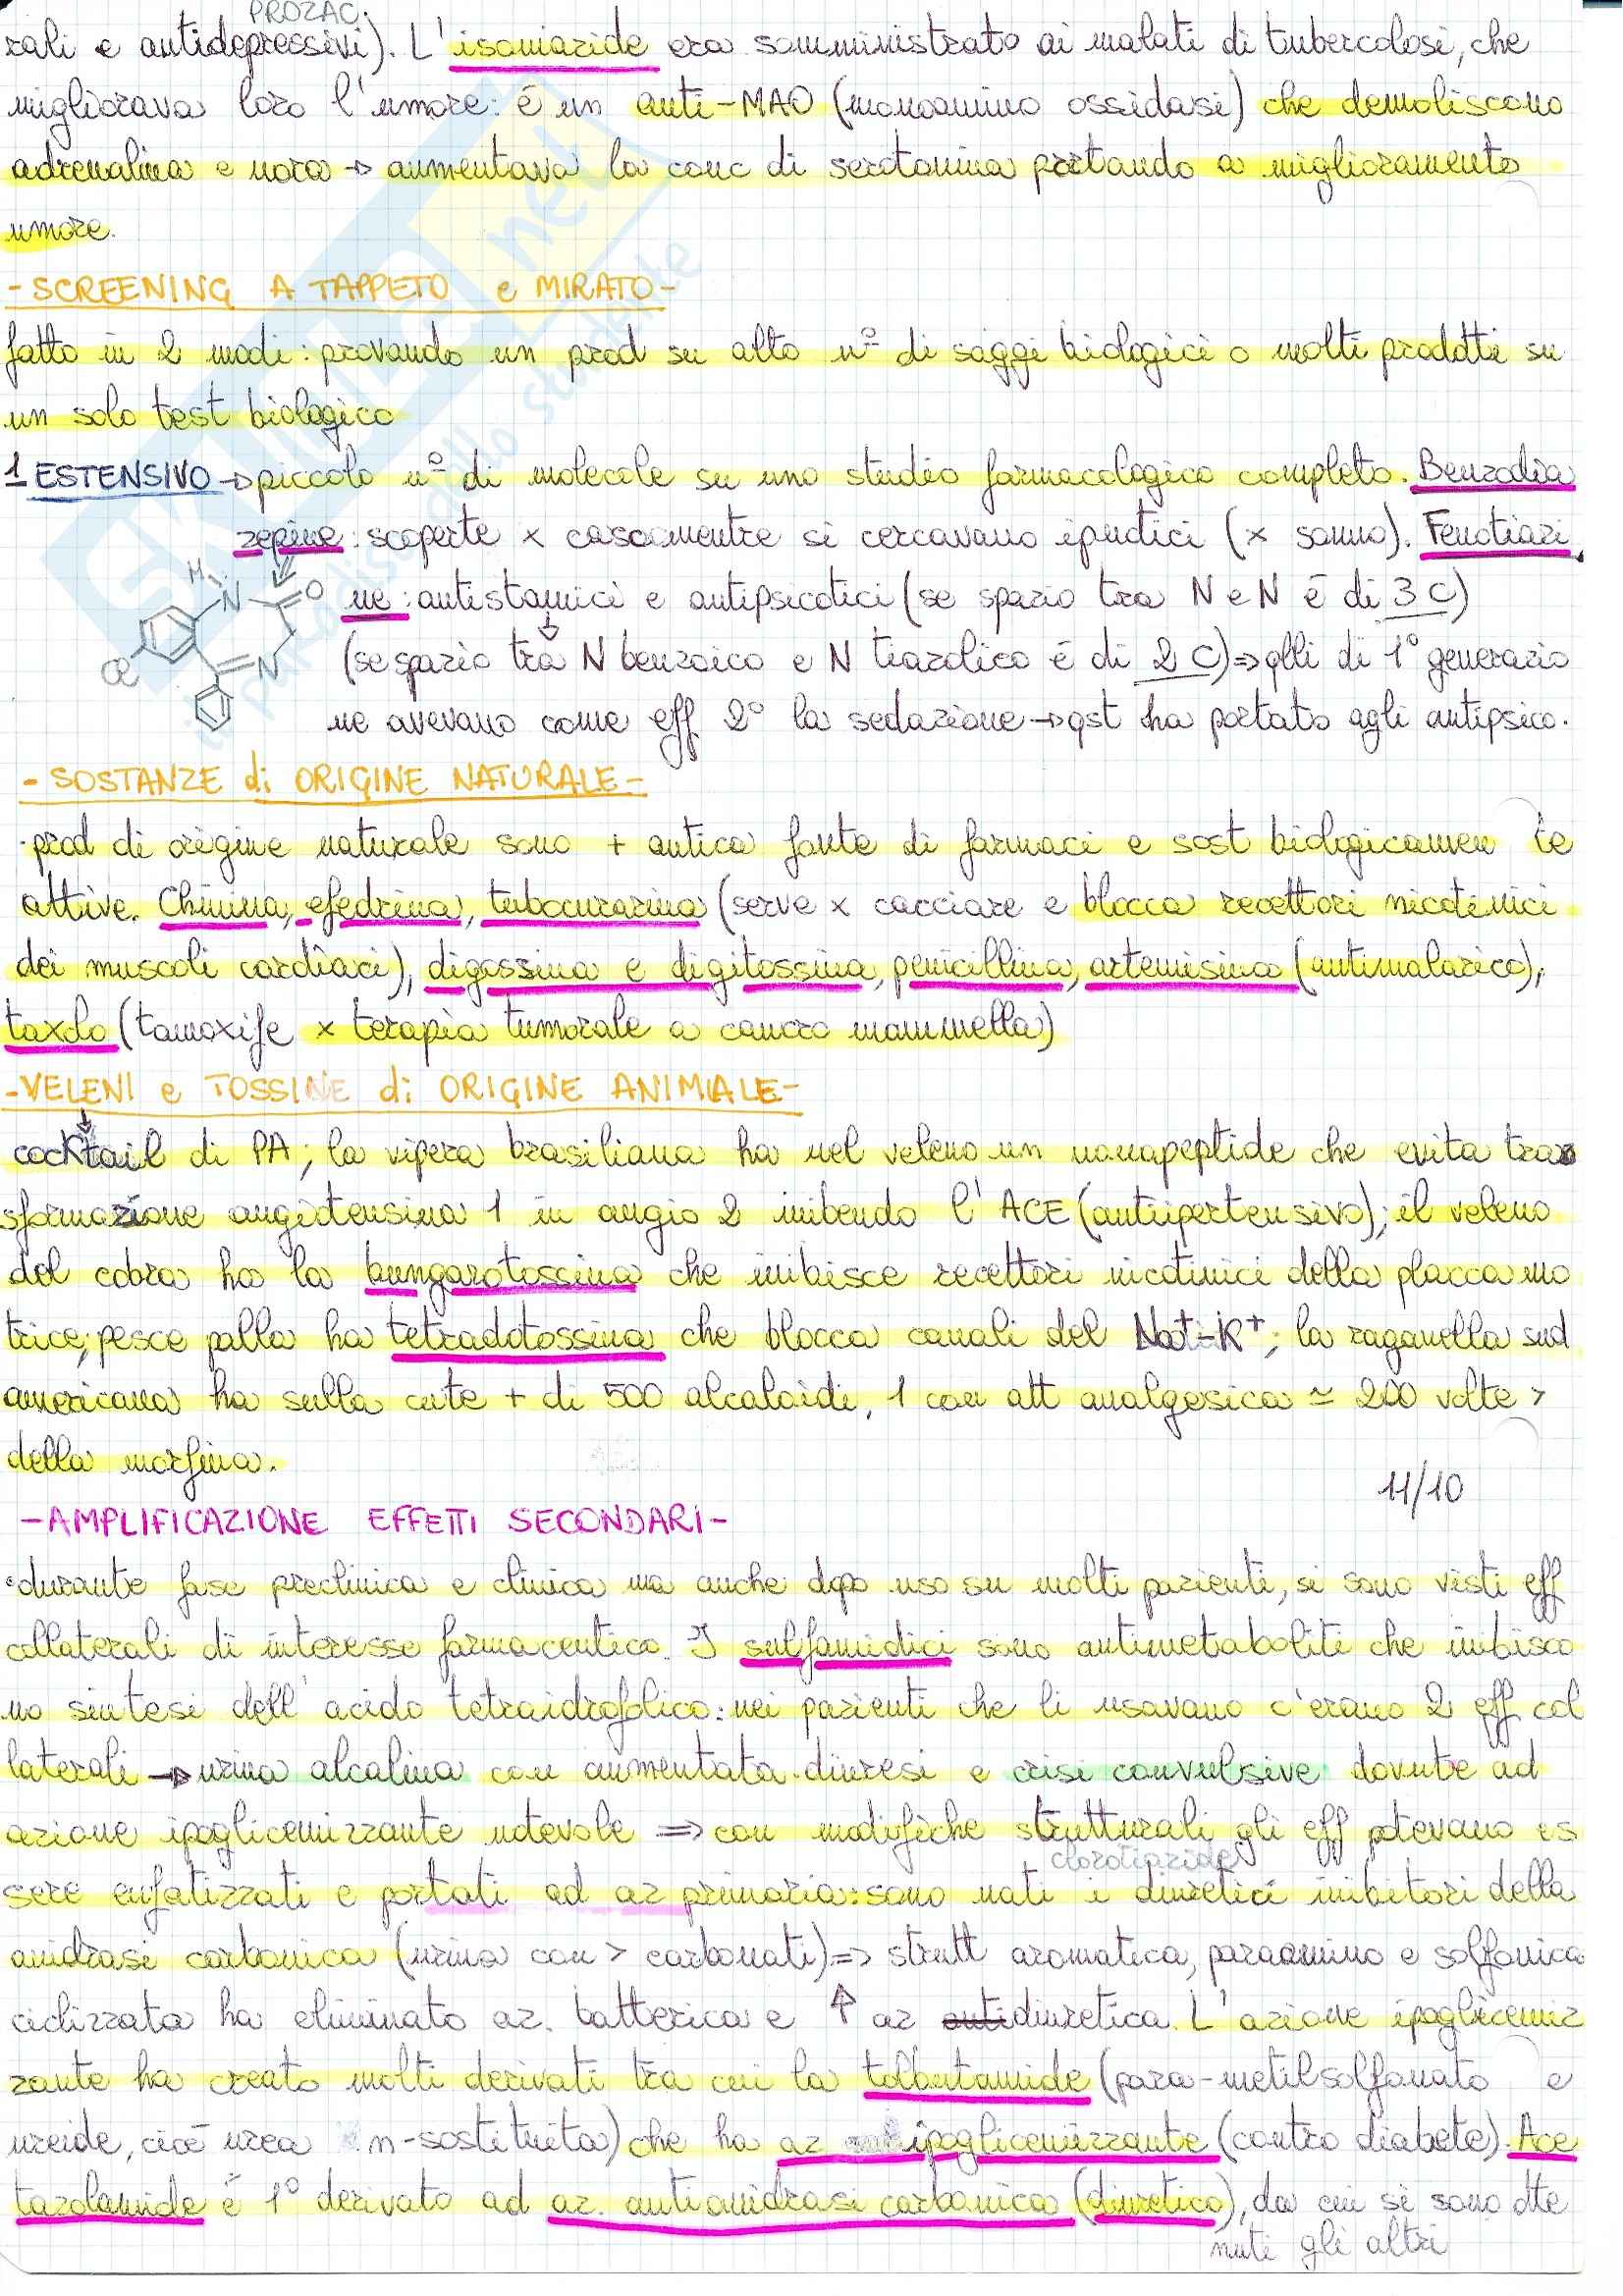 PROZAC.
rali e antidepressivi). L'isoniazide era somministrato ai malati di tubercolosi, che
migliorava loro l'umore: è un anti-MAO (monoamino ossidasi) che demoliscono
adrenalina e nora → aumentava la conc di serotonina portando a miglioramento
umore.
-SCREENING A TAPPETO e MIRATO-
fatto in 2 modi: provando un prod su alto n° di saggi biologici o molti prodotti su
un solo test biologico
1 ESTENSIVO → piccolo n° di molecole su uno studio farmacologico completo. Benzodia
zepine: scoperte x caso mentre si cercavano ipnotici (x sonno). Fenotiazi
ne: antistamici e antipsicotici (se spazio tra N e N è di 3 C)
(se spazio tra N benzoico e N tiazolico è di 2 C) ⇒ qlli di 1° generazio
ne avevano come eff 2° la sedazione → qst ha portato agli antipsico.
H N O N Cl
- SOSTANZE di ORIGINE NATURALE -
·prod di origine naturale sono + antica fonte di farmaci e sost biologicamen te
attive. Chinina, efedrina, tubocurarina (serve x cacciare e blocca recettori nicotinici
dei muscoli cardiaci), digossina e digitossina, penicillina, artemisina (antimalarico),
taxolo (tamoxife x terapia tumorale a cancro mammella)
-VELENI e TOSSINE di ORIGINE ANIMALE-
cocktail di PA; la vipera brasiliana ha nel veleno un nonapeptide che evita tra
sformazione angiotensina 1 in angio 2 inibendo l'ACE (antiipertensivo); il veleno
del cobra ha la bungarotossina che inibisce recettori nicotinici della placca mo
trice; pesce palla ha tetradotossina che blocca canali del Na+-K+; la raganella sud
americana ha sulla cute + di 500 alcaloidi, 1 con att analgesica ≃ 200 volte >
della morfina.
11/10
-AMPLIFICAZIONE EFFETTI SECONDARI-
·durante fase preclinica e clinica ma anche dopo uso su molti pazienti, si sono visti eff
collaterali di interesse farmaceutico. I sulfamidici sono antimetaboliti che inibisco
no sintesi dell'acido tetraidrofolico: nei pazienti che li usavano c'erano 2 eff col
laterali → urina alcalina con aumentata diuresi e crisi convulsive dovute ad
azione ipoglicemizzante notevole ⇒ con modifiche strutturali gli eff potevano es
clorotiazide
sere enfatizzati e portati ad az primaria: sono nati i diuretici inibitori della
anidrasi carbonica (urina con > carbonati) ⇒ strutt aromatica, paraamino e solfonica
ciclizzata ha eliminato az. batterica e ↑ az antidiuretica. L'azione ipoglicemiz
zante ha creato molti derivati tra cui la tolbutamide (para-metilsolfonato e
ureide, cioè urea n-sostituita) che ha az ipoglicemizzante (contro diabete). Ace
tazolamide è 1° derivato ad az. antianidrasi carbonica (diuretico), da cui si sono otte
nuti gli altri
SKUOLA.net
il paradiso dello studente